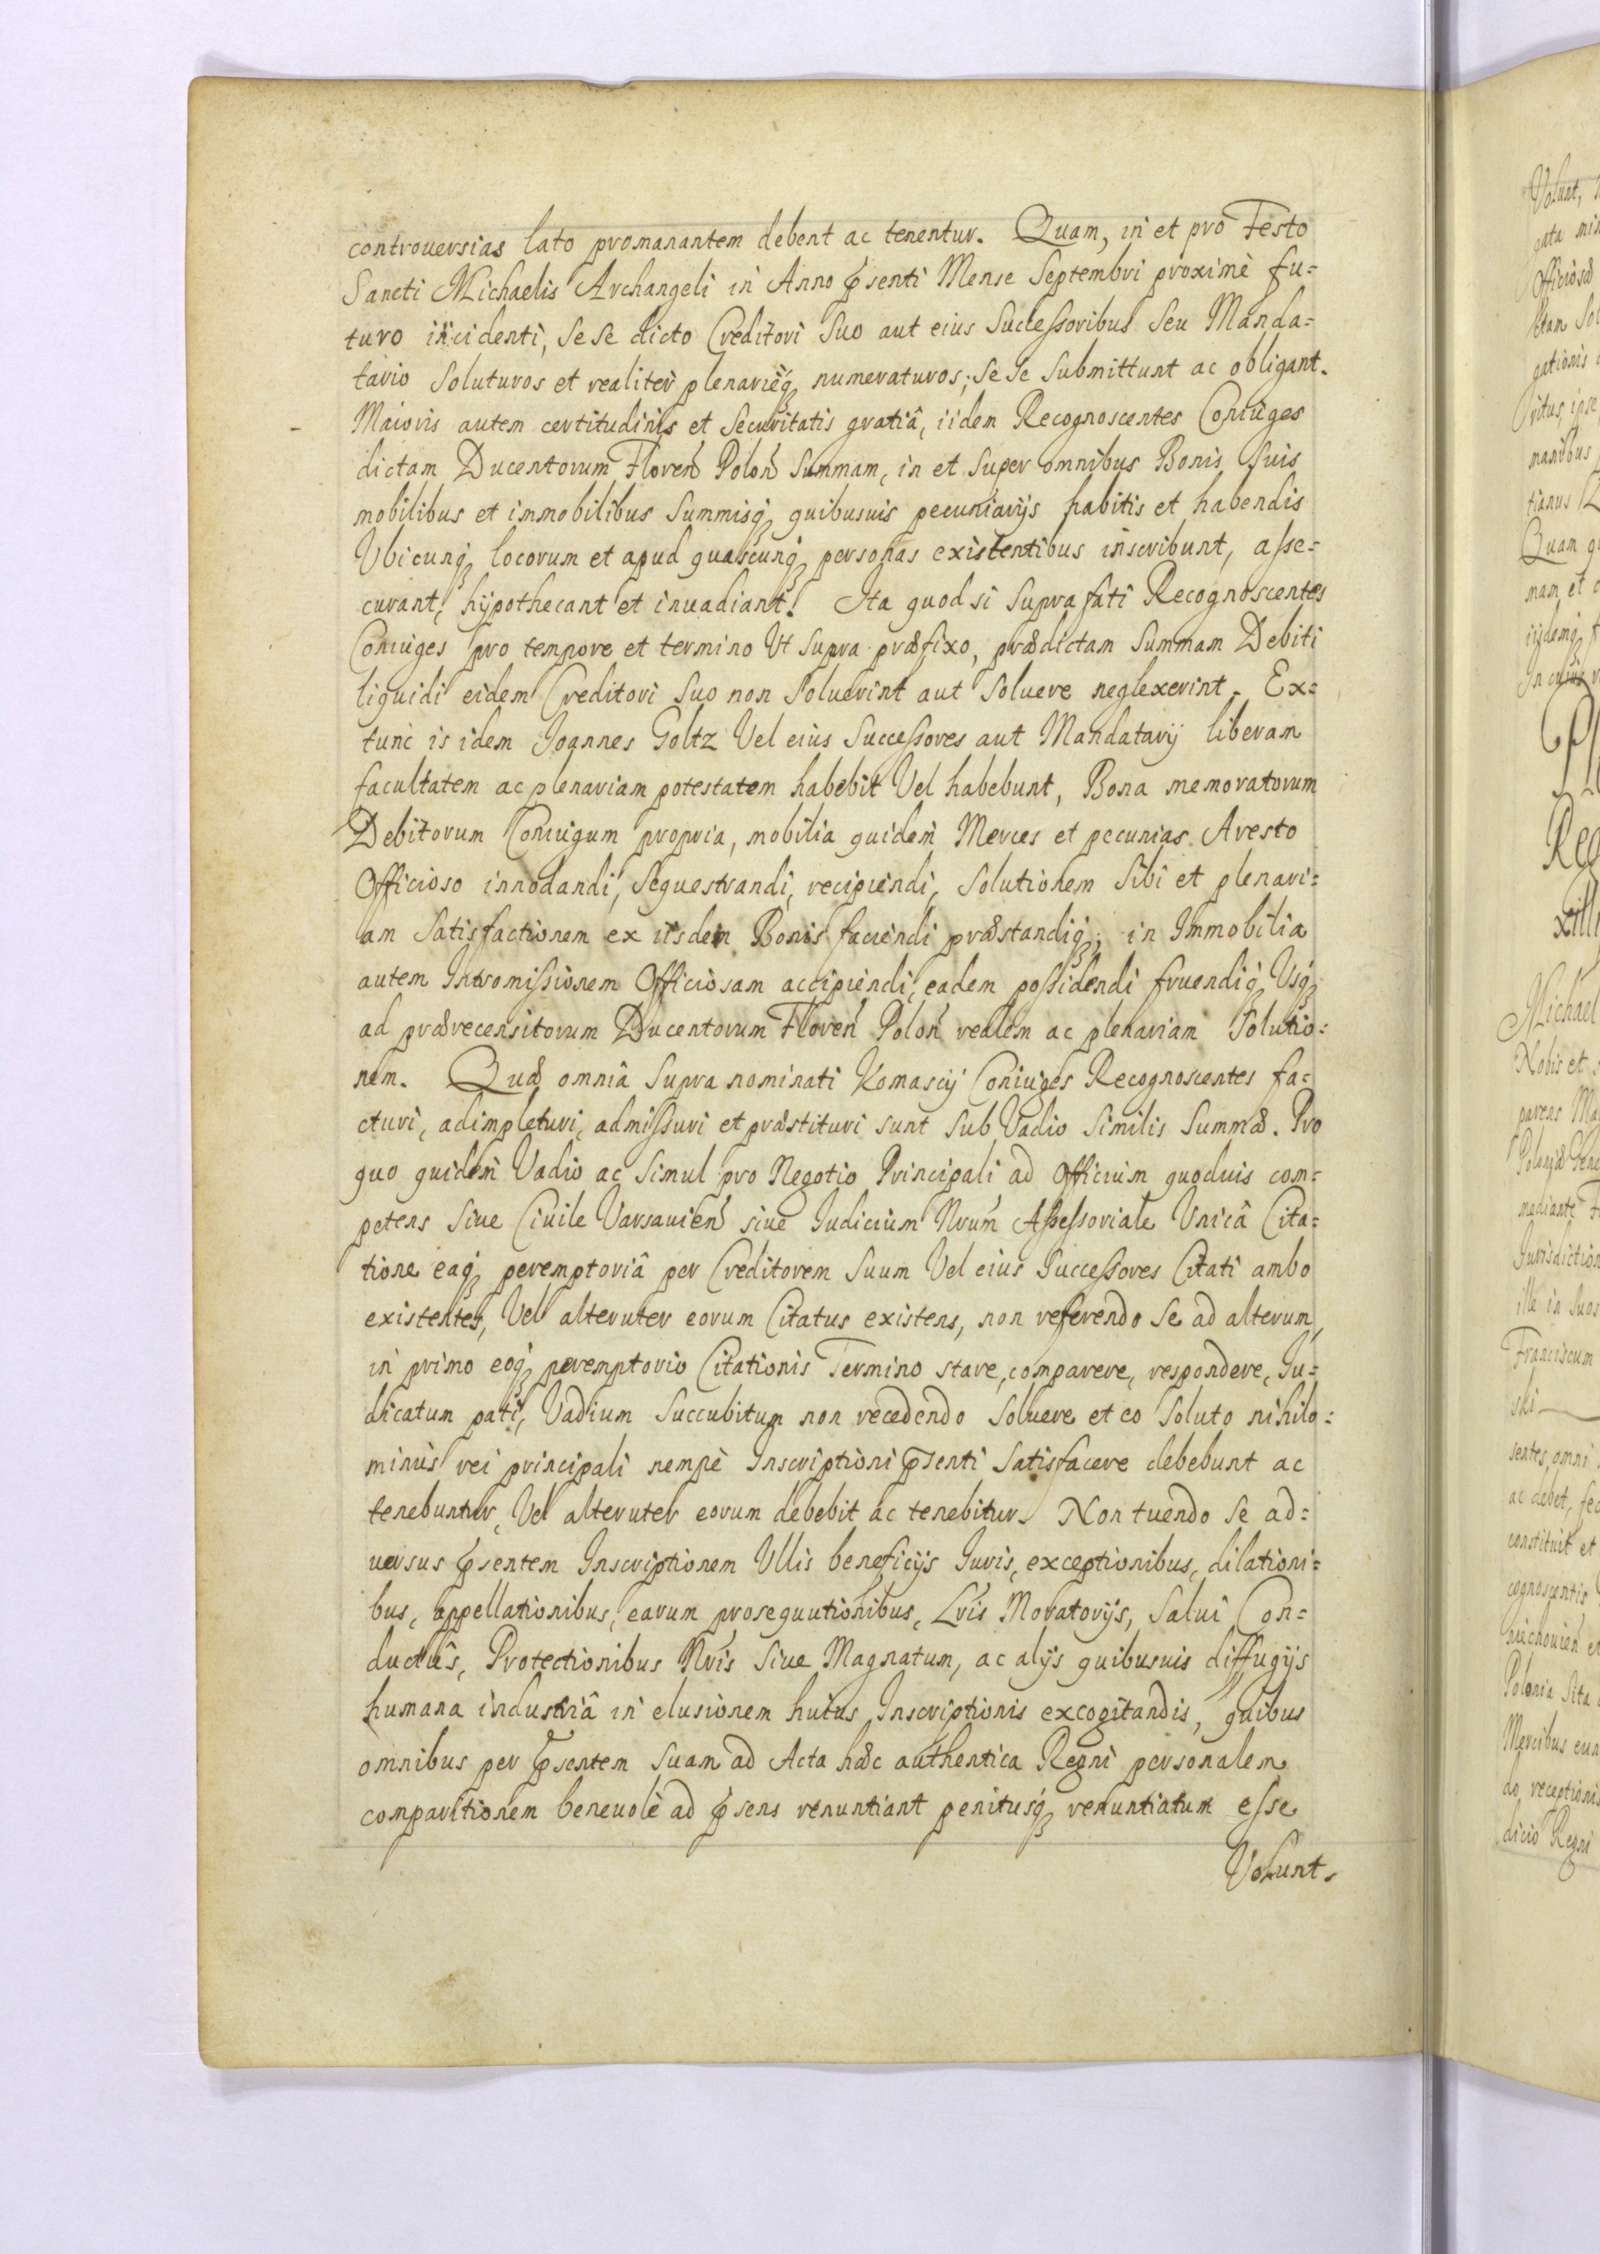 controuersias lato promanantem debent ac tenentur. Quam, in et pro Festo
Sancti Michaelis Archangeli in Anno p̄senti Mense Septembri proximè fu=
turo incidenti, se se dicto Creditori suo aut eius Successoribus seu Manda=
tario soluturos et realiter plenarièq; numeraturos, se se submittunt ac obligant.
Maioris autem certitudinis et securitatis gratiâ, iidem Recognoscentes Coniuges
dictam Ducentorum Floreń Poloń summam, in et super omnibus Bonis suis
mobilibus et immobilibus Summisq; quibusuis pecuniarijs habitis et habendis
Vbicunq; locorum et apud quascunq; personas existentibus inscribunt, asse=
curant, hypothecant et inuadiant. Ita quod si supra fati Recognoscentes
Coniuges pro tempore et termino Vt supra præfixo, prædictam summam Debiti
liquidi eidem Creditori suo non soluerint aut soluere neglexerint. Ex=
tunc is idem Joannes Goltz Vel eius Successores aut Mandatarij liberam
facultatem ac plenariam potestatem habebit Vel habebunt, Bona memoratorum
Debitorum Coniugum propria, mobilia quidem Merces et pecunias Aresto
Officioso innodandi, sequestrandi, recipiendi, solutionem sibi et plenari=
am satisfactionem ex iisdem Bonis faciendi præstandiq; in Immobilia
autem Intromissionem Officiosam accipiendi, eadem possidendi fruendiq; Vsq;
ad prærecensitorum Ducentorum Floreń Poloń realem ac plenariam solutio=
nem. Quæ omnia supra nominati Komascij Coniuges Recognoscentes fa=
cturi, adimpleturi, admissuri et præstituri sunt sub Vadio similis summæ. Pro
quo quidem Vadio ac simul pro Negotio Principali ad Officium quoduis com=
petens siue Ciuile Varsauień siue Iudicium Nrum̄ Assessoriale Vnicâ Cita=
tione eaq; peremptoriâ per Creditorem suum Vel eius Successores Citati ambo
existentes, Vel alteruter eorum Citatus existens, non referendo se ad alterum,
in primo eoq; peremptorio Citationis Termino stare, comparere, respondere, Iu=
dicatum pati, Vadium succubitum non recedendo soluere et eo soluto nihilo=
minùs rei principali nempè Inscriptioni p̄senti satisfacere debebunt ac
tenebuntur, Vel alteruter eorum debebit ac tenebitur. Non tuendo se ad=
uersus p̄sentem Inscriptionem Vllis beneficijs Iuris, exceptionibus, dilationi=
bus, appellationibus, earum prosequutionibus, Lrís Moratorijs, Salui Con=
ductûs, Protectionibus Nrís siue Magnatum, ac alijs quibusuis diffugijs
humana industriâ in elusionem huius Inscriptionis excogitandis, quibus
omnibus per p̄sentem suam ad Acta hæc authentica Regni personalem
comparitionem beneuolè ad p̄sens renuntiant penitusq; renuntiatum esse
Volunt.